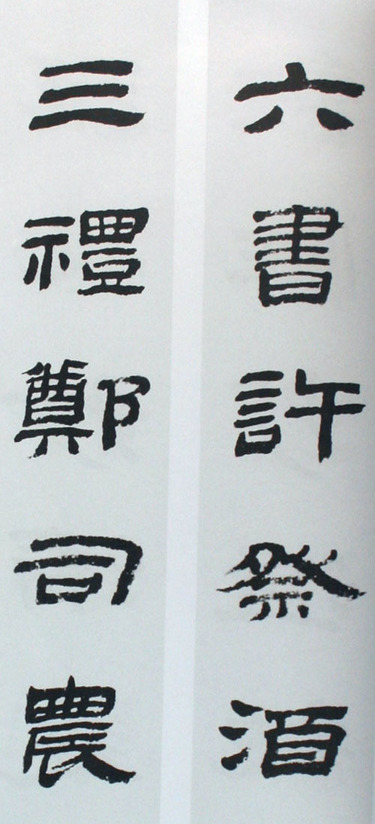 六書許祭酒
三禮鄭司農